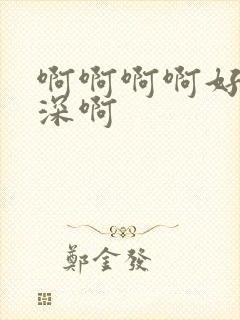 啊啊啊啊好
深啊
鄭金發